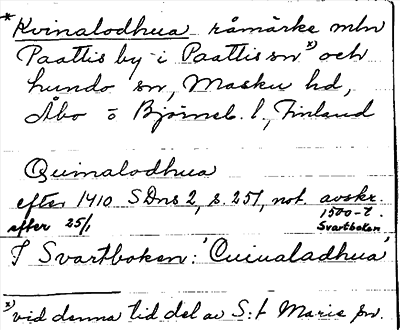 * Kvinalodhua råmärke mln
Paattis by i Paattis sn x) och
Lundo sn, Masku hd,
Åbo o Björneb. l, Finland
Quinalodhua
efter 1410 SDns 2, s. 251, not. avskr.
efter 25/1 1500-t.
Svartboken
I Svartboken: 'Cuinaladhua'
x) vid denna tid del av S:t Marie sn.